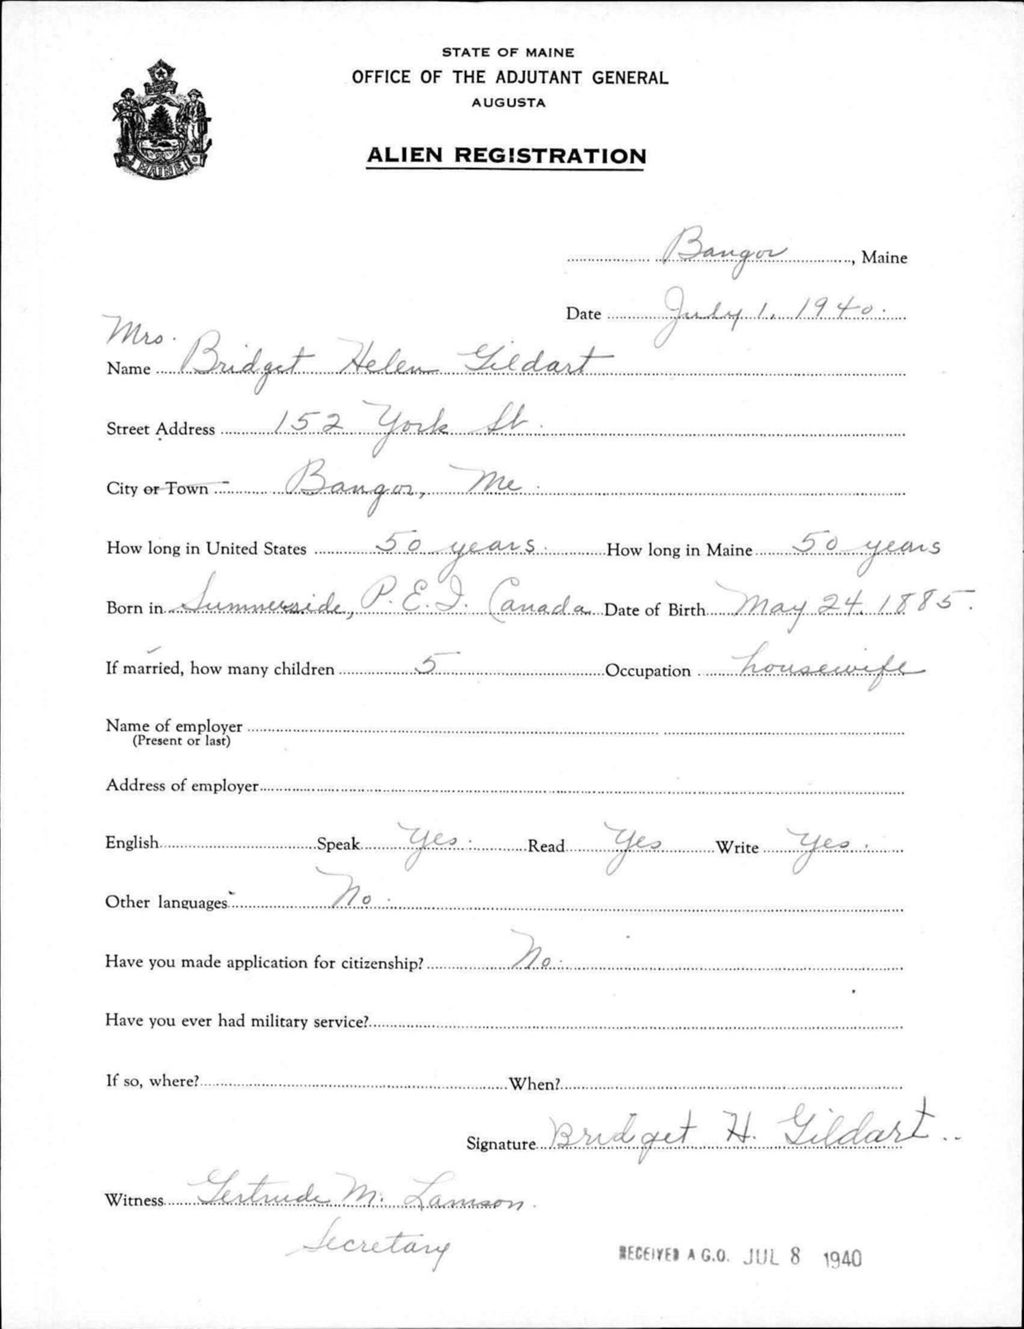 STATE OF MAINE
OFFICE OF THE ADJUTANT GENERAL
AUGUSTA
ALIEN REGISTRATION
MAINE
Bangor, Maine
Date July 1, 1940.
Mrs.
Name Bridget Helen Gildart
Street Address 152 York St.
City or Town Bangor, Me.
How long in United States 50 years. How long in Maine 50 years
Born in Summerside, P.E.I. Canada Date of Birth May 24, 1885.
If married, how many children 5 Occupation housewife
Name of employer
(Present or last)
Address of employer
English Speak Yes. Read Yes Write Yes.
Other languages No.
Have you made application for citizenship? No.
Have you ever had military service?
If so, where? When?
Signature Bridget H. Gildart
Witness Gertrude M. Lamson.
Secretary
RECEIVED A.G.O. JUL 8 1940